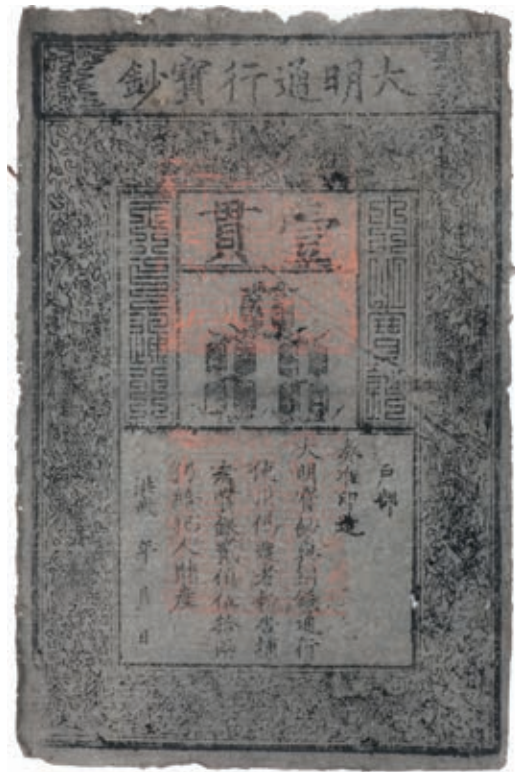 大明通行寶鈔
壹貫
大明寶鈔
天下通行
戶部
奏准印造
大明寶鈔與銅錢通行
使用偽造者斬告捕
者賞銀貳佰伍拾兩
仍給犯人財產
洪武 年 月 日